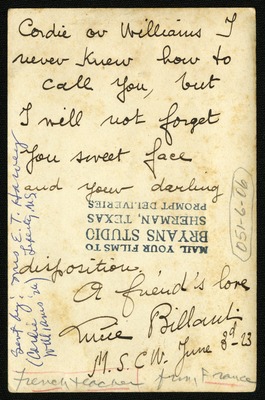 Cordie or Williams I
never knew how to
call you, but
I will not forget
you sweet face
and your darling
disposition.
A friend's love
Billaut
M.S.C.W. June 3rd-23
french teacher from France
MAIL YOUR FILMS TO
BRYANS STUDIO
SHERMAN, TEXAS
PROMPT DELIVERIES
051-6-06
Sent by: Mrs E. T. Harvey
(Cordie Williams in